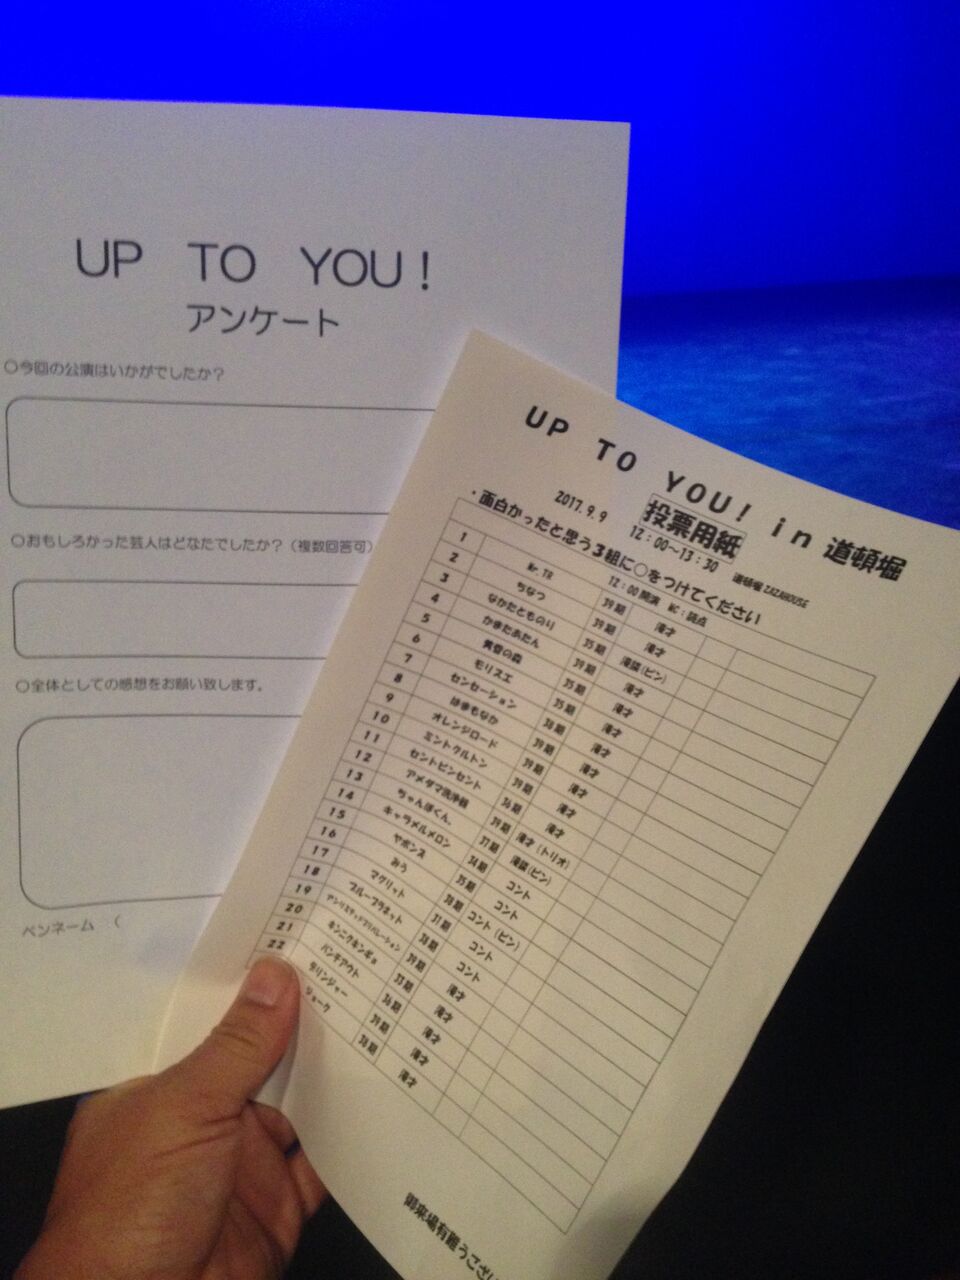 UP TO YOU!
アンケート
○今回の公演はいかがでしたか?
○おもしろかった芸人はどなたでしたか?(複数回答可)
○全体としての感想をお願い致します。
ペンネーム (
UP TO YOU! in 道頓堀
投票用紙
2017.9.9 12:00~13:30 道頓堀ZAZAHOUSE
・面白かったと思う3組に○をつけてください
12:00開演 MC:読点
1 Mr.TR 39期 漫才
2 ちなつ 39期 漫才
3 なかたとものり 35期 漫談(ピン)
4 かまたあたん 39期 漫才
5 黄昏の森 35期 漫才
6 モリスエ 35期 漫才
7 センセーション 38期 漫才
8 はまもなか 39期 漫才
9 オレンジロード 39期 漫才
10 ミントクルトン 39期 漫才
11 セントピンセント 36期 漫才(トリオ)
12 アメダマ洗浄機 39期 漫談(ピン)
13 ちゃんぽくん。 37期 コント
14 キャラメルメロン 34期 コント
15 ヤポンズ 35期 コント(ピン)
16 みう 38期 コント
17 マグリット 31期 コント
18 ブループラネット 38期 漫才
19 39期 漫才
20 キンニクキンギョ 33期 漫才
21 パンチアウト 36期 漫才
22 デリンジャー 39期 漫才
ジョーク 38期
御来場有難うござい